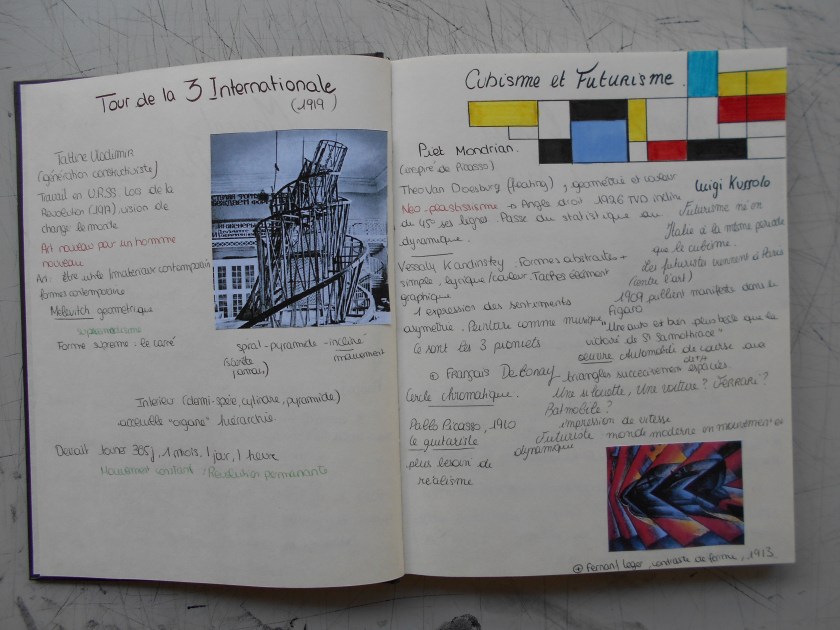 Tour de la 3 Internationale
(1919)
Tatline Vladimir
(génération constructiviste)
Travail en U.R.S.S. Lors de la
Révolution (1917), vision de
change le monte.
Art nouveau pour un homme
nouveau
Art : Être utile (materiaux contemporain
formes contemporaine
Malevitch geometrique
suprematisme
Forme supreme : le carré
spiral - pyramide - incliné
mouvement
Interieur (demi-spère, cylindre, pyramide)
accueille "organe" hierarchie
Devait tourner 365j, 1 mois, 1 jour, 1 heure
Mouvement constant : Révolution permanante
Cubisme et Futurisme.
Piet Mondrian.
(inspiré de Picasso)
Theo Van Doesburg (floating), géométrie et couleur
Néo-plastissisme → Angles droit 1926 TVD incline
de 45° ses lignes. Passe du statistique au
dynamique.
Vassaly Kandinsky. Formes abstraites +
simple. Lyrique/couleur. Taches élément
graphique
1 expression des sentiments
asymetrie. Peinture comme musique
Ce sont les 3 pionniers
⊕ Français Delonay
Cercle chromatique.
Pablo Picasso, 1910
le guitariste
plus besoin de
réalisme
Luigi Russolo
Futurisme né en
Italie à la même periode
que le cubisme.
Les futuristes viennent à Paris
(contre l'art)
1909 publient manifeste dans le
Figaro
"Une auto est bien plus belle que la
victoire de St Samothrace"
oeuvre Automobile de course avec
triangles successivement espacés
Une silouette, Une voiture ? Ferrari ?
Batmobile ?
impression de vitesse
Futuriste monde moderne en mouvement et
dynamique
⊕ Fernand Leger, contraste de forme, 1913